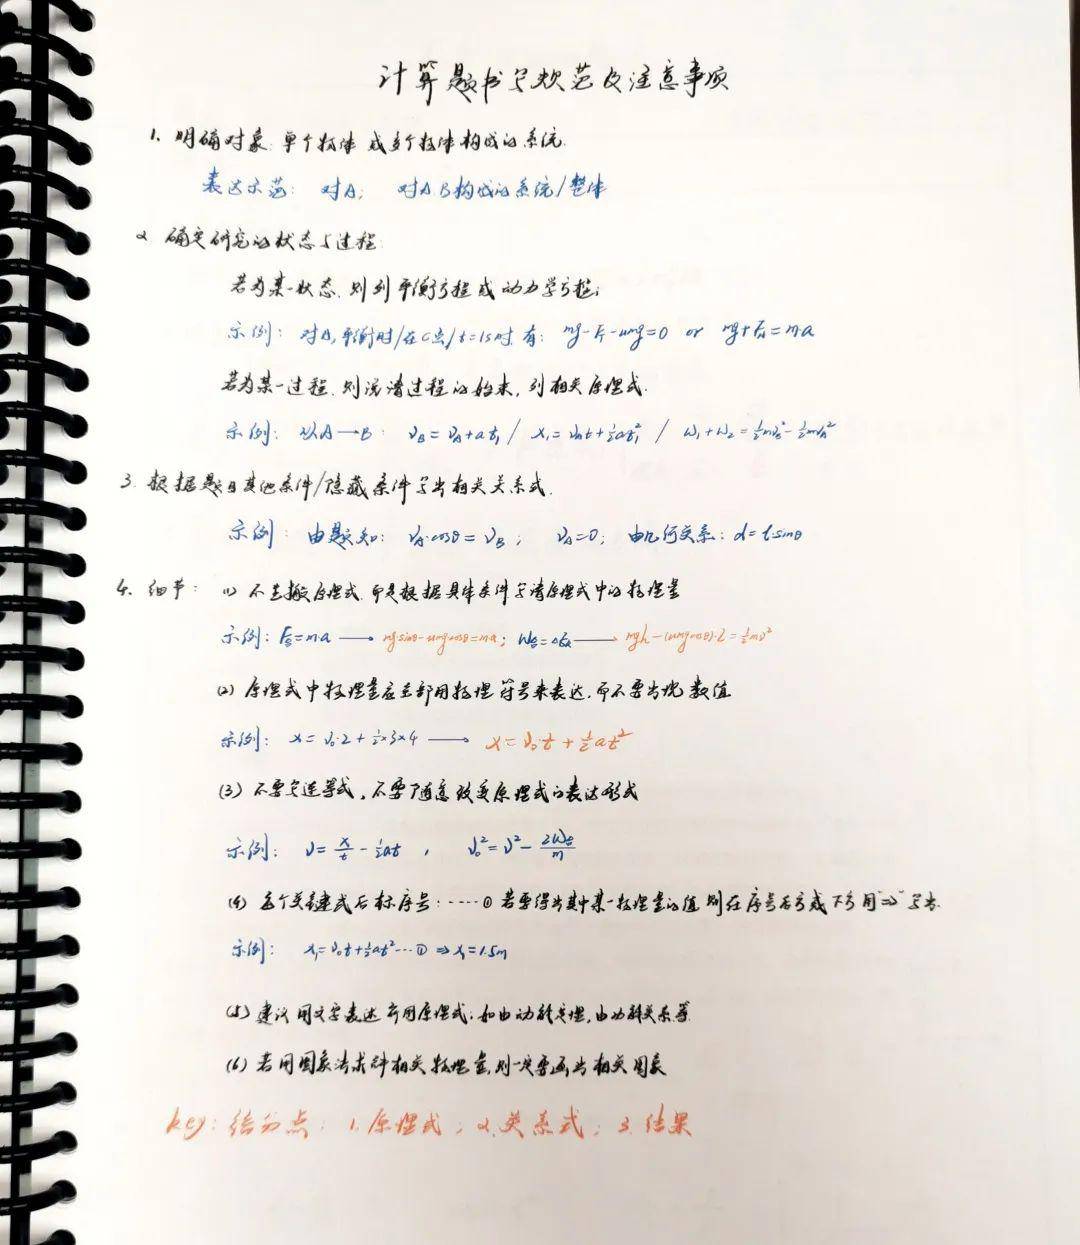 计算题书写规范及注意事项
1. 明确对象: 单个物体 或多个物体构成的系统.
表达示范: 对A; 对AB构成的系统/整体
2. 确定研究的状态与过程:
若为某一状态, 则列平衡方程或动力学方程;
示例: 对A, 平衡时/在C点/t=1s时, 有: mg-F-umg=0 or mg+F=ma
若为某一过程, 则说清过程的始末, 列相关原理式.
示例: 从A→B: v_B=v_A+at₁ / x₁=v_At+½at₁² / W₁+W₂=½mv_B²-½mv_A²
3. 根据题目其他条件/隐藏条件写出相关关系式.
示例: 由题知: v_A·cosθ=v_B; v_A=0; 由几何关系: d=l·sinθ
4. 细节: (1) 不直接搬原理式, 而是根据具体条件写清原理式中的物理量
示例: F合=ma → mgsinθ-umgcosθ=ma; W合=ΔE_k → mgh-(umgcosθ)·L=½mv²
(2) 原理式中物理量应全部用物理符号来表达, 而不要出现数值
示例: x=v₀·2+½×3×4 → x=v₀t+½at²
(3) 不要写连等式, 不要随意改变原理式的表达形式
示例: v=x/t-½at, v₀²=v²-2W合/m
(4) 每个关键式后标序号: ……① 若要得出其中某一物理量的值, 则在序号右方或下方用"⇒"写出.
示例: x₁=v₀t+½at²…① ⇒x₁=1.5m
(5) 建议用文字表达所用原理式; 如由动能定理, 由功能关系等.
(6) 若用图象法求解相关物理量, 则一定要画出相关图象
key: 给分点: 1. 原理式; 2. 关系式; 3. 结果